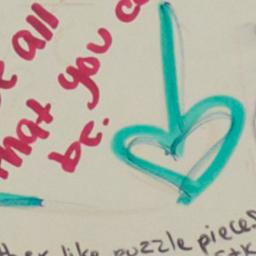 all
that you c
be.
like puzzle pieces